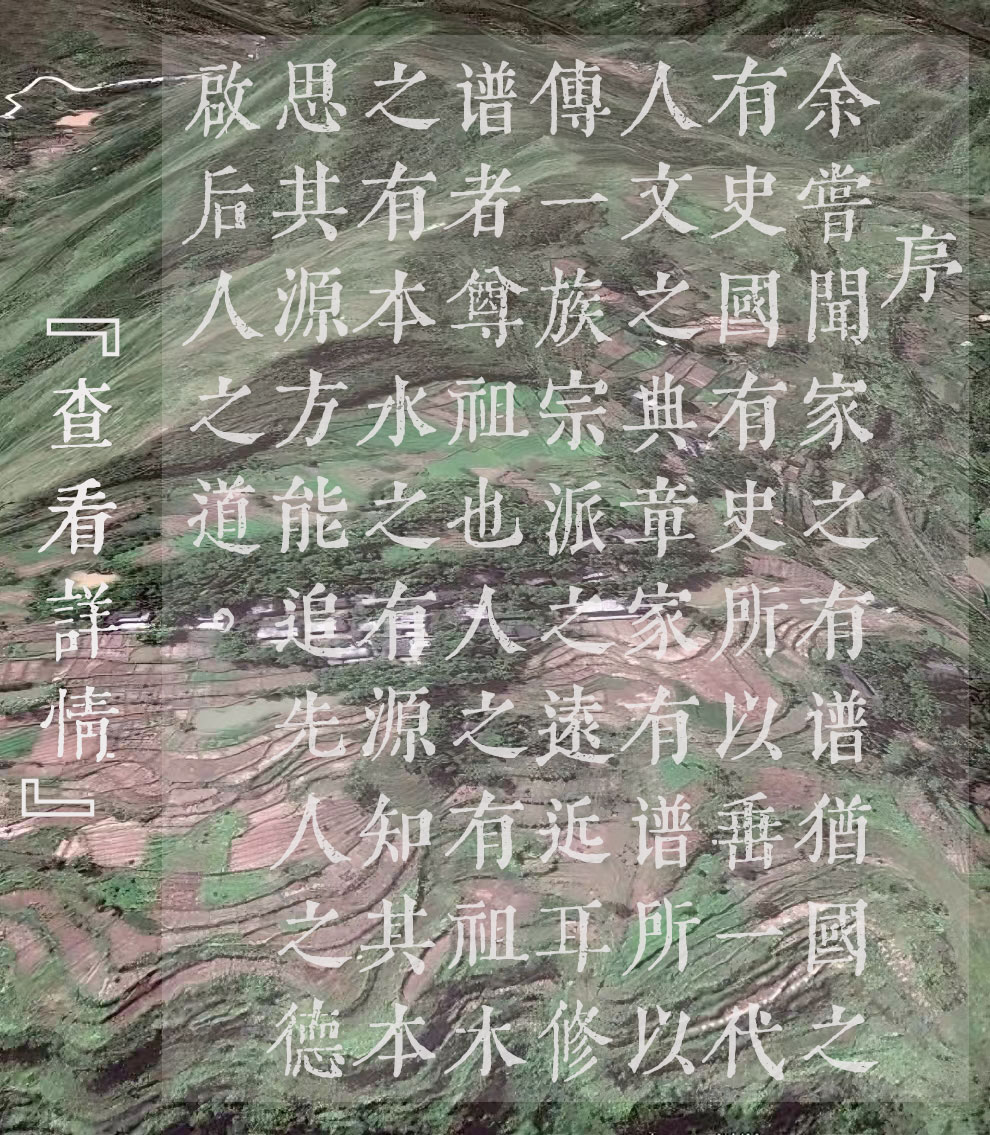 序
余嘗聞家之有谱猶國之
有史國有史所以垂一代
人文之典章家有谱所以
傳一族宗派之遠近耳修
谱者尊祖也人之有祖木
之有本水之有源知其本
思其源方能追先人之德
啟后人之道。
『查看詳情』